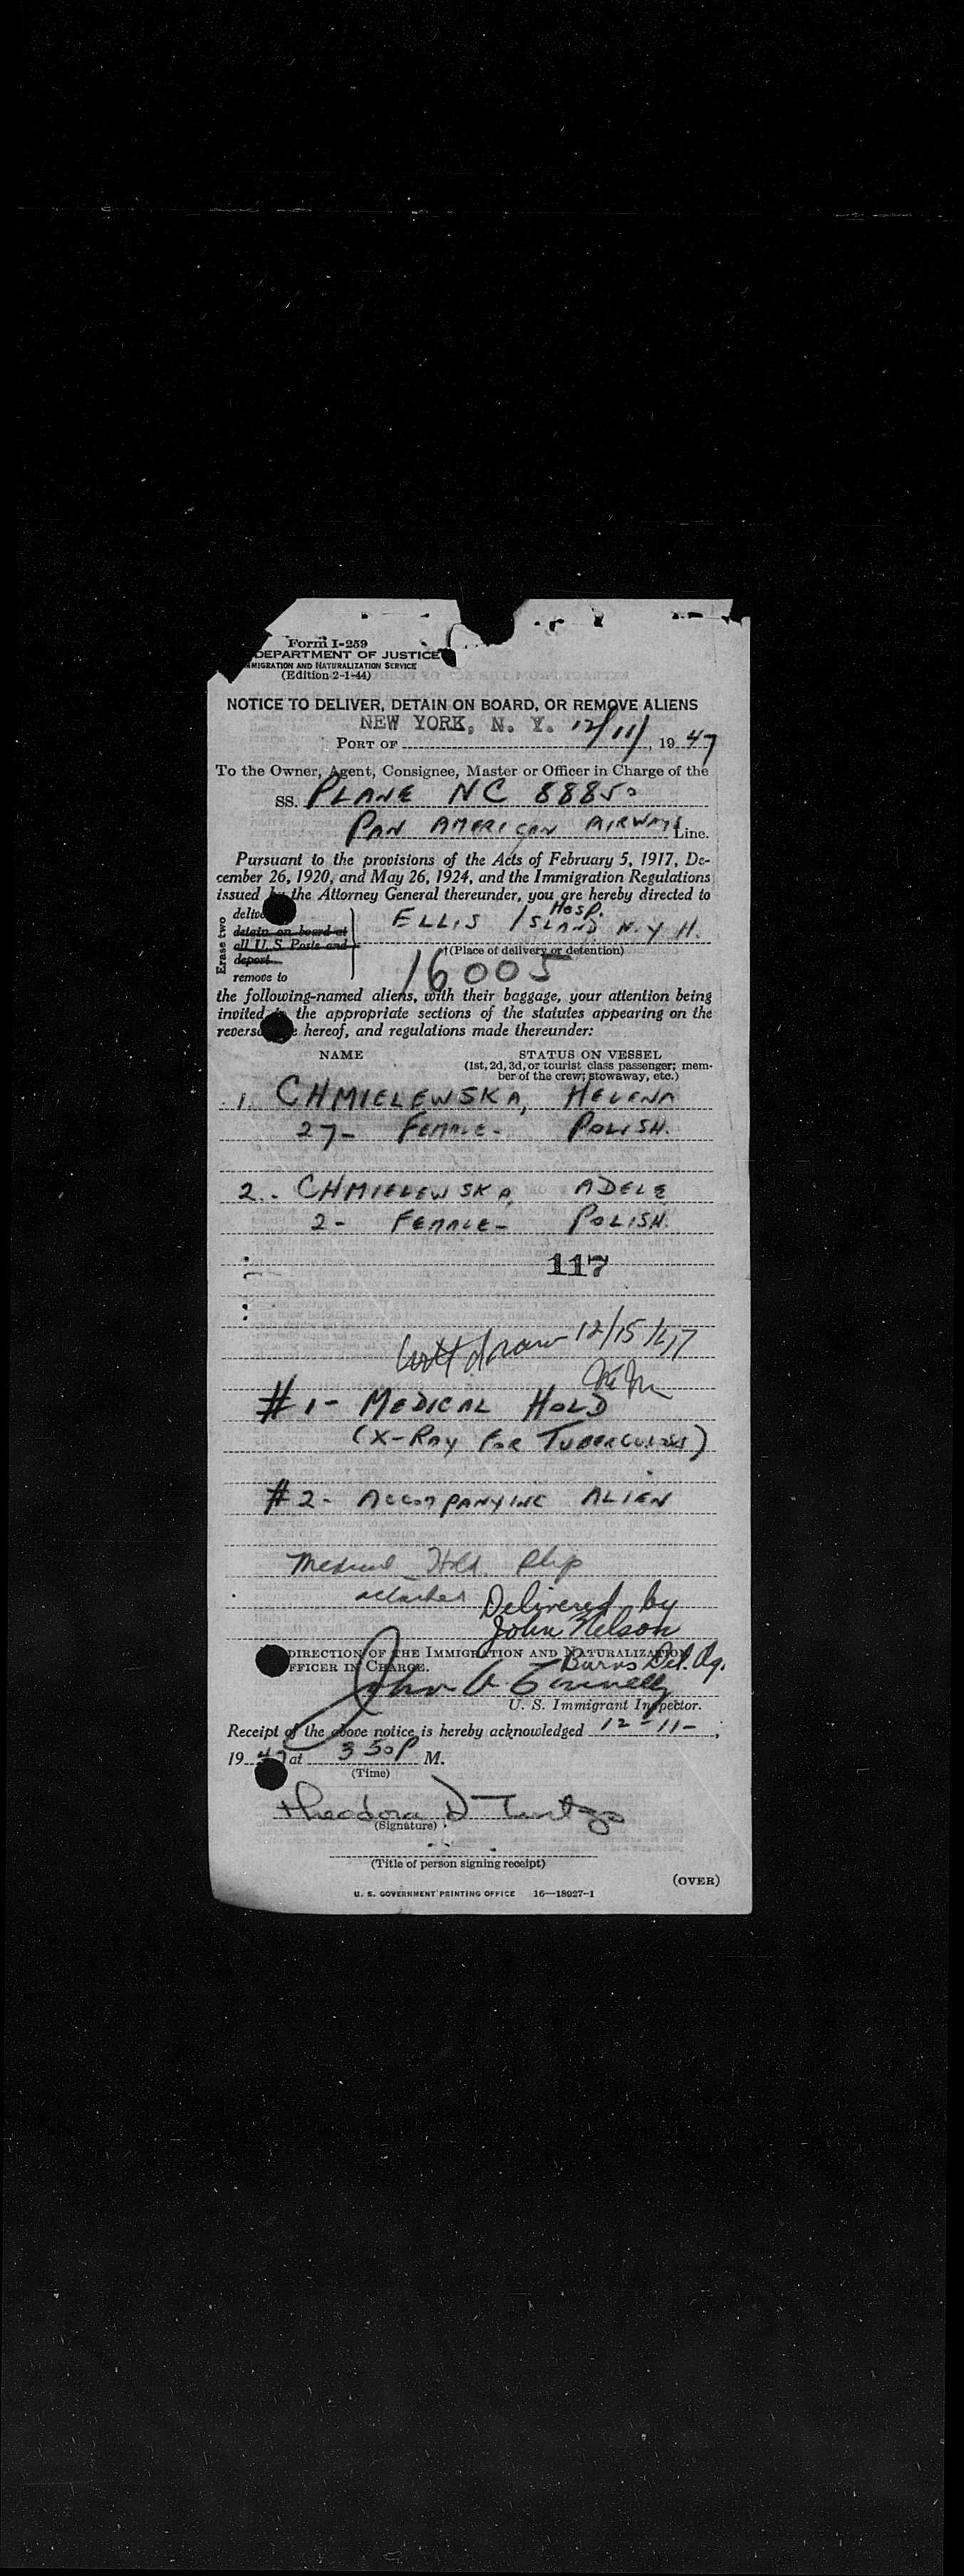 Form I-259
DEPARTMENT OF JUSTICE
MIGRATION AND NATURALIZATION SERVICE
(Edition 2-1-44)
NOTICE TO DELIVER, DETAIN ON BOARD, OR REMOVE ALIENS
NEW YORK, N. Y. 12/11/
PORT OF , 19 47
To the Owner, Agent, Consignee, Master or Officer in Charge of the
SS. PLANE NC 88850
PAN AMERICAN AIRWAYS Line.
Pursuant to the provisions of the Acts of February 5, 1917, De-
cember 26, 1920, and May 26, 1924, and the Immigration Regulations
issued by the Attorney General thereunder, you are hereby directed to
Erase two
delive
detain on board at
all U.S. Ports and
deport
remove to
ELLIS ISLAND Hosp. N.Y.H.
†(Place of delivery or detention)
16005
the following-named aliens, with their baggage, your attention being
invited the appropriate sections of the statutes appearing on the
revers e hereof, and regulations made thereunder:
NAME STATUS ON VESSEL
(1st, 2d, 3d, or tourist class passenger; mem-
ber of the crew; stowaway, etc.)
1. CHMIELEWSKA, HELENA
27- FEMALE- POLISH.
2.. CHMIELEWSKA, ADELE
2- FEMALE- POLISH.
117
Withdrawn 12/15/47
#1- MEDICAL HOLD
(X-RAY FOR TUBERCULOSIS)
#2- ACCOMPANYING ALIEN
Medical Hold Slip
attached
Delivered by
John Nelson
Burns Det. Ag.
DIRECTION OF THE IMMIGRATION AND NATURALIZATION
FFICER IN CHARGE.
John A. Connelly
U. S. Immigrant Inspector.
Receipt of the above notice is hereby acknowledged 12-11-,
19 47 at 3 50 P M.
(Time)
Theodora D
(Signature)
(Title of person signing receipt)
(OVER)
U. S. GOVERNMENT PRINTING OFFICE 16—18927-1